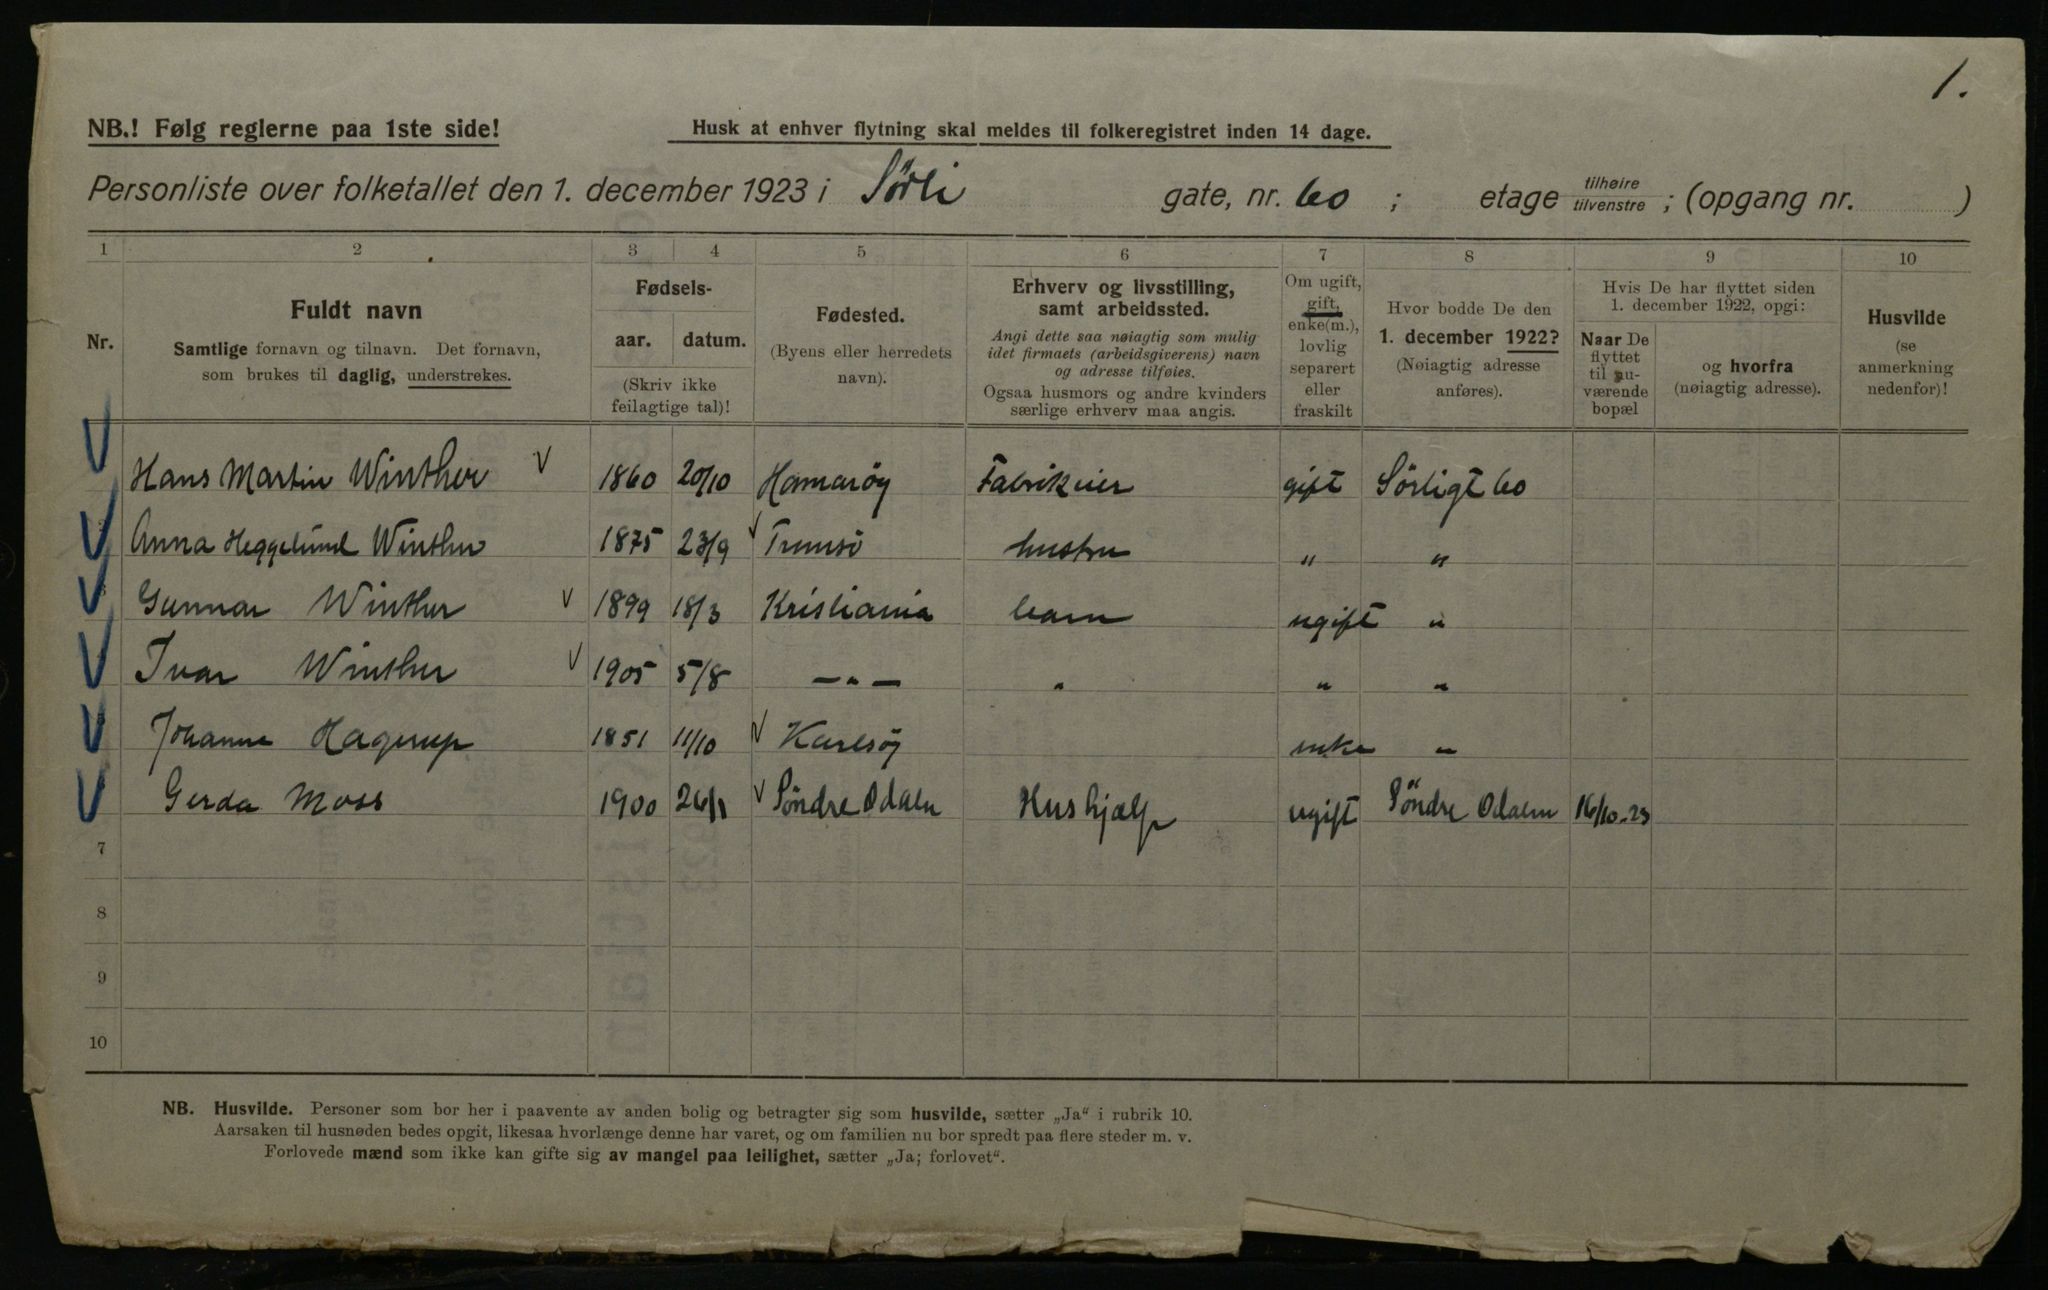 1.
NB.! Følg reglerne paa 1ste side!
Husk at enhver flytning skal meldes til folkeregistret inden 14 dage.
Personliste over folketallet den 1. december 1923 i Sørli gate, nr. 60 ; etage tilhøire tilvenstre ; (opgang nr. )
1 2 3 4 5 6 7 8 9 10
Nr.
Fuldt navn
Samtlige fornavn og tilnavn. Det fornavn,
som brukes til daglig, understrekes.
Fødsels-
aar. datum.
(Skriv ikke
feilagtige tal)!
Fødested.
(Byens eller herredets
navn).
Erhverv og livsstilling,
samt arbeidssted.
Angi dette saa nøiagtig som mulig
idet firmaets (arbeidsgiverens) navn
og adresse tilføies.
Ogsaa husmors og andre kvinders
særlige erhverv maa angis.
Om ugift,
gift,
enke(m.),
lovlig
separert
eller
fraskilt
Hvor bodde De den
1. december 1922?
(Nøiagtig adresse
anføres).
Hvis De har flyttet siden
1. december 1922, opgi:
Naar De
flyttet
til nu-
værende
bopæl
og hvorfra
(nøiagtig adresse).
Husvilde
(se
anmerkning
nedenfor)!
Hans Martin Winther 1860 20/10 Hamaröy Fabrikeier gift Sörligt 60
Anna Heggelund Winther 1875 23/9 Tromsö hustru " "
Gunnar Winther 1899 18/3 Kristiania barn ugift "
Ivar Winther 1905 5/8 — " — " " "
Johanne Hagerup 1851 11/10 Karlsöy enke "
Gerda Moss 1900 26/1 Söndre Odalen Hushjælp ugift Söndre Odalen 16/10-23
7
8
9
10
NB. Husvilde. Personer som bor her i paavente av anden bolig og betragter sig som husvilde, sætter „Ja“ i rubrik 10.
Aarsaken til husnøden bedes opgit, likesaa hvorlænge denne har varet, og om familien nu bor spredt paa flere steder m. v.
Forlovede mænd som ikke kan gifte sig av mangel paa leilighet, sætter „Ja; forlovet“.